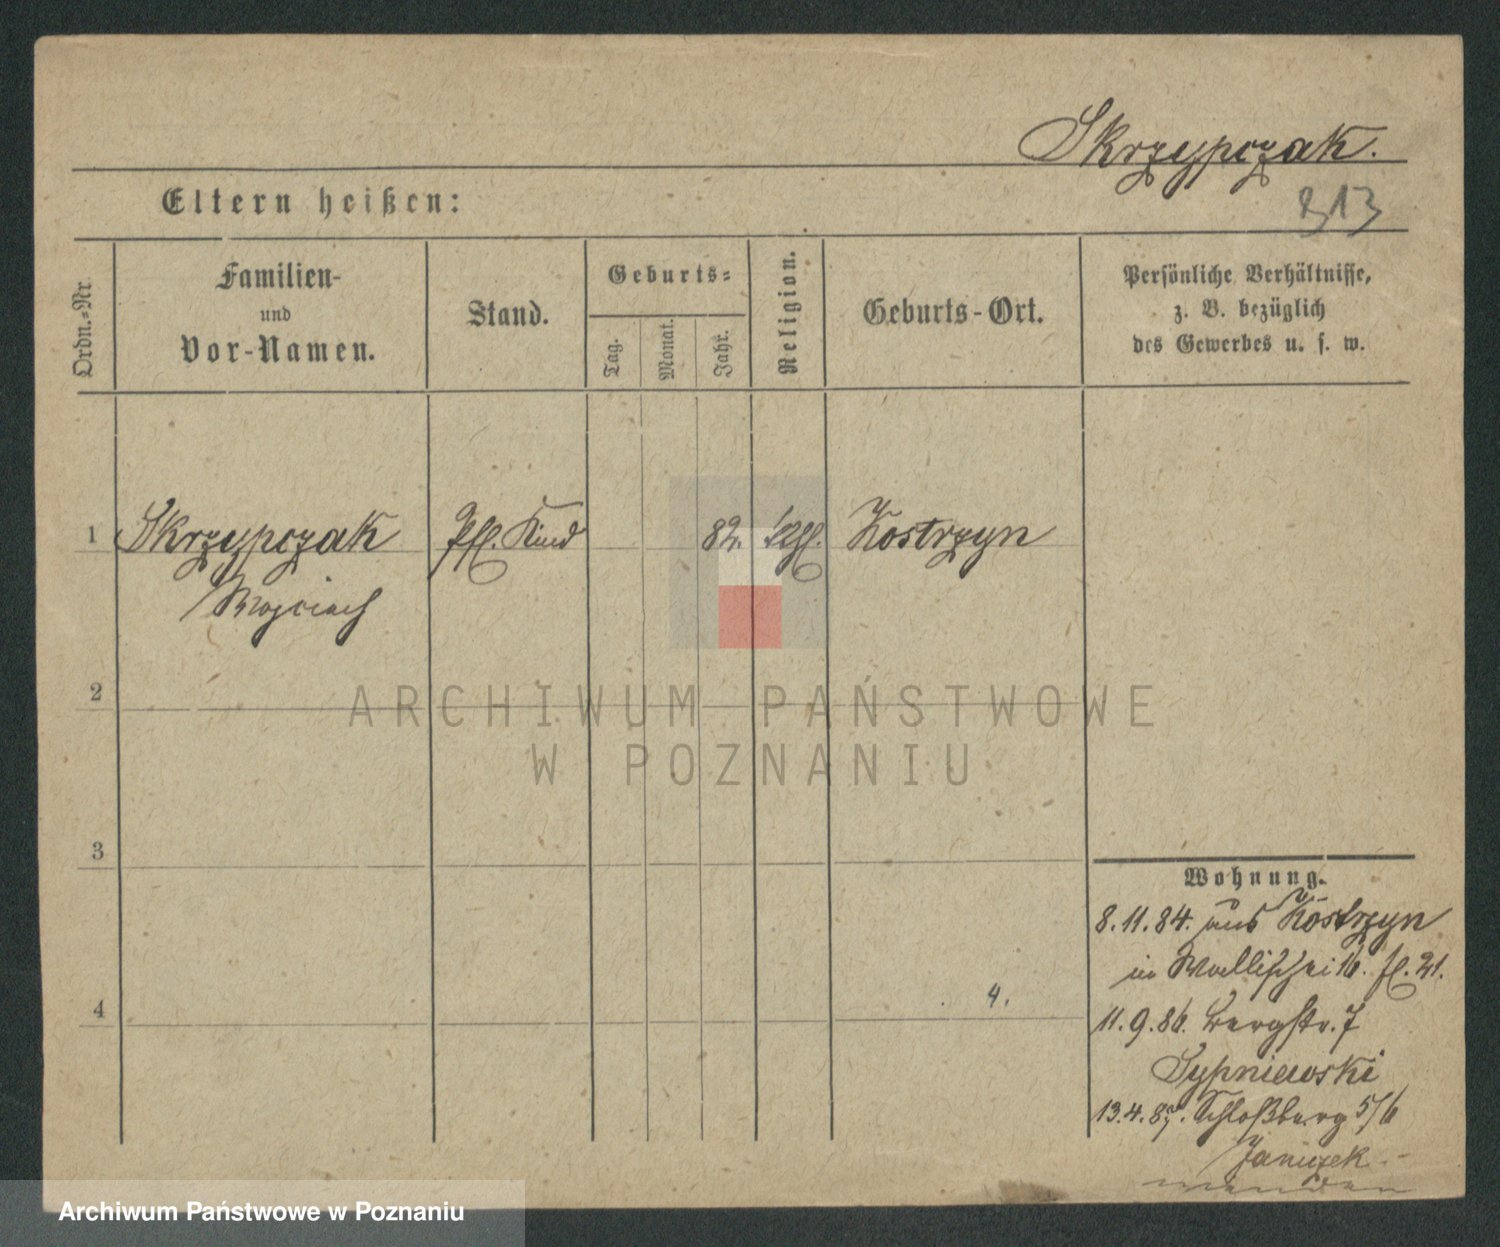 Skrzypczak.
Eltern heißen:
313
Ordn.=Nr.
Familien-
und
Vor-Namen.
Stand.
Geburts=
Tag.
Monat.
Jahr.
Religion.
Geburts-Ort.
Persönliche Verhältnisse,
z. B. bezüglich
des Gewerbes u. s. w.
1 Skrzypczak Pfl. Kind 82. kath. Kostrzyn
Wojciech
2
3
4
4.
ARCHIWUM PAŃSTWOWE
W POZNANIU
Wohnung.
8.11.84. aus Kostrzyn
in Wallischei 16. fl. 21.
11.9.86. Bergstr. 7
Sypniewski
13.4.87. Schloßberg 5/6
Janiszek
Archiwum Państwowe w Poznaniu